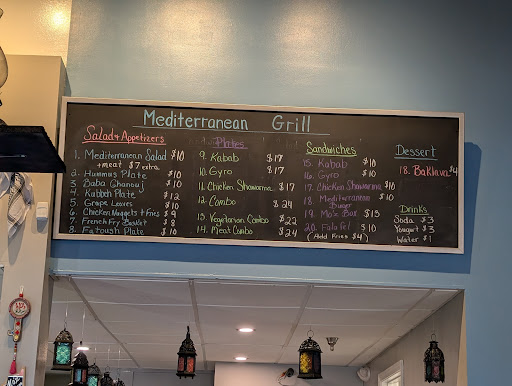 Mediterranean Grill
Salad & Appetizers
1. Mediterranean Salad $10
+ meat $7 extra
2. Hummus Plate $10
3 Baba Ghanouj $10
4. Kabbeh Plate $12
5 Grape Leaves $10
6. Chicken Nuggets & Fries $9
7. French Fry Basket $8
8. Fatoush Plate $10
Plates
9. Kabab $17
10. Gyro $17
11. Chicken Shawarma $17
12. Combo $24
13. Vegetarian Combo $22
14. Meat Combo $24
Sandwiches
15. Kabab $10
16. Gyro $10
17. Chicken Shawarma $10
18 Mediterranean Burger $10
19. Mo's Box $15
20. Falafel $10
(Add Fries $4)
Dessert
18. Baklava $4
Drinks
Soda $3
Yougurt $3
Water $1